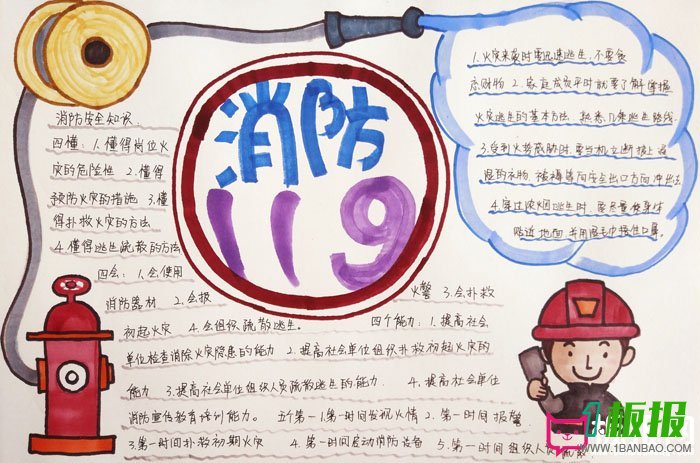 消防
119
消防安全知识
四懂：1.懂得岗位火
灾的危险性 2.懂得
预防火灾的措施 3.懂
得扑救火灾的方法
4.懂得逃生疏散的方法
四会：1.会使用
消防器材 2.会报
火警 3.会扑救
初起火灾 4.会组织疏散逃生。 四个能力：1.提高社会
单位检查消除火灾隐患的能力 2.提高社会单位组织扑救初起火灾的
能力 3.提高社会单位组织人员疏散逃生的能力 4.提高社会单位
消防宣传教育培训能力。 五个第一1.第一时间发现火情 2.第一时间报警
3.第一时间扑救初期火灾 4.第一时间启动消防设备 5.第一时间组织人员
1.火灾来袭时要迅速逃生，不要贪
恋财物 2.家庭成员平时就要了解掌握
火灾逃生的基本方法，熟悉几条逃生路线
3.受到火势威胁时，要当机立断披上浸
湿的衣物，被褥等向安全出口方向冲出去
4.穿过浓烟逃生时，要尽量使身体
贴近地面，并用湿毛巾捂住口鼻。
板报
WWW.1BANBAO.COM